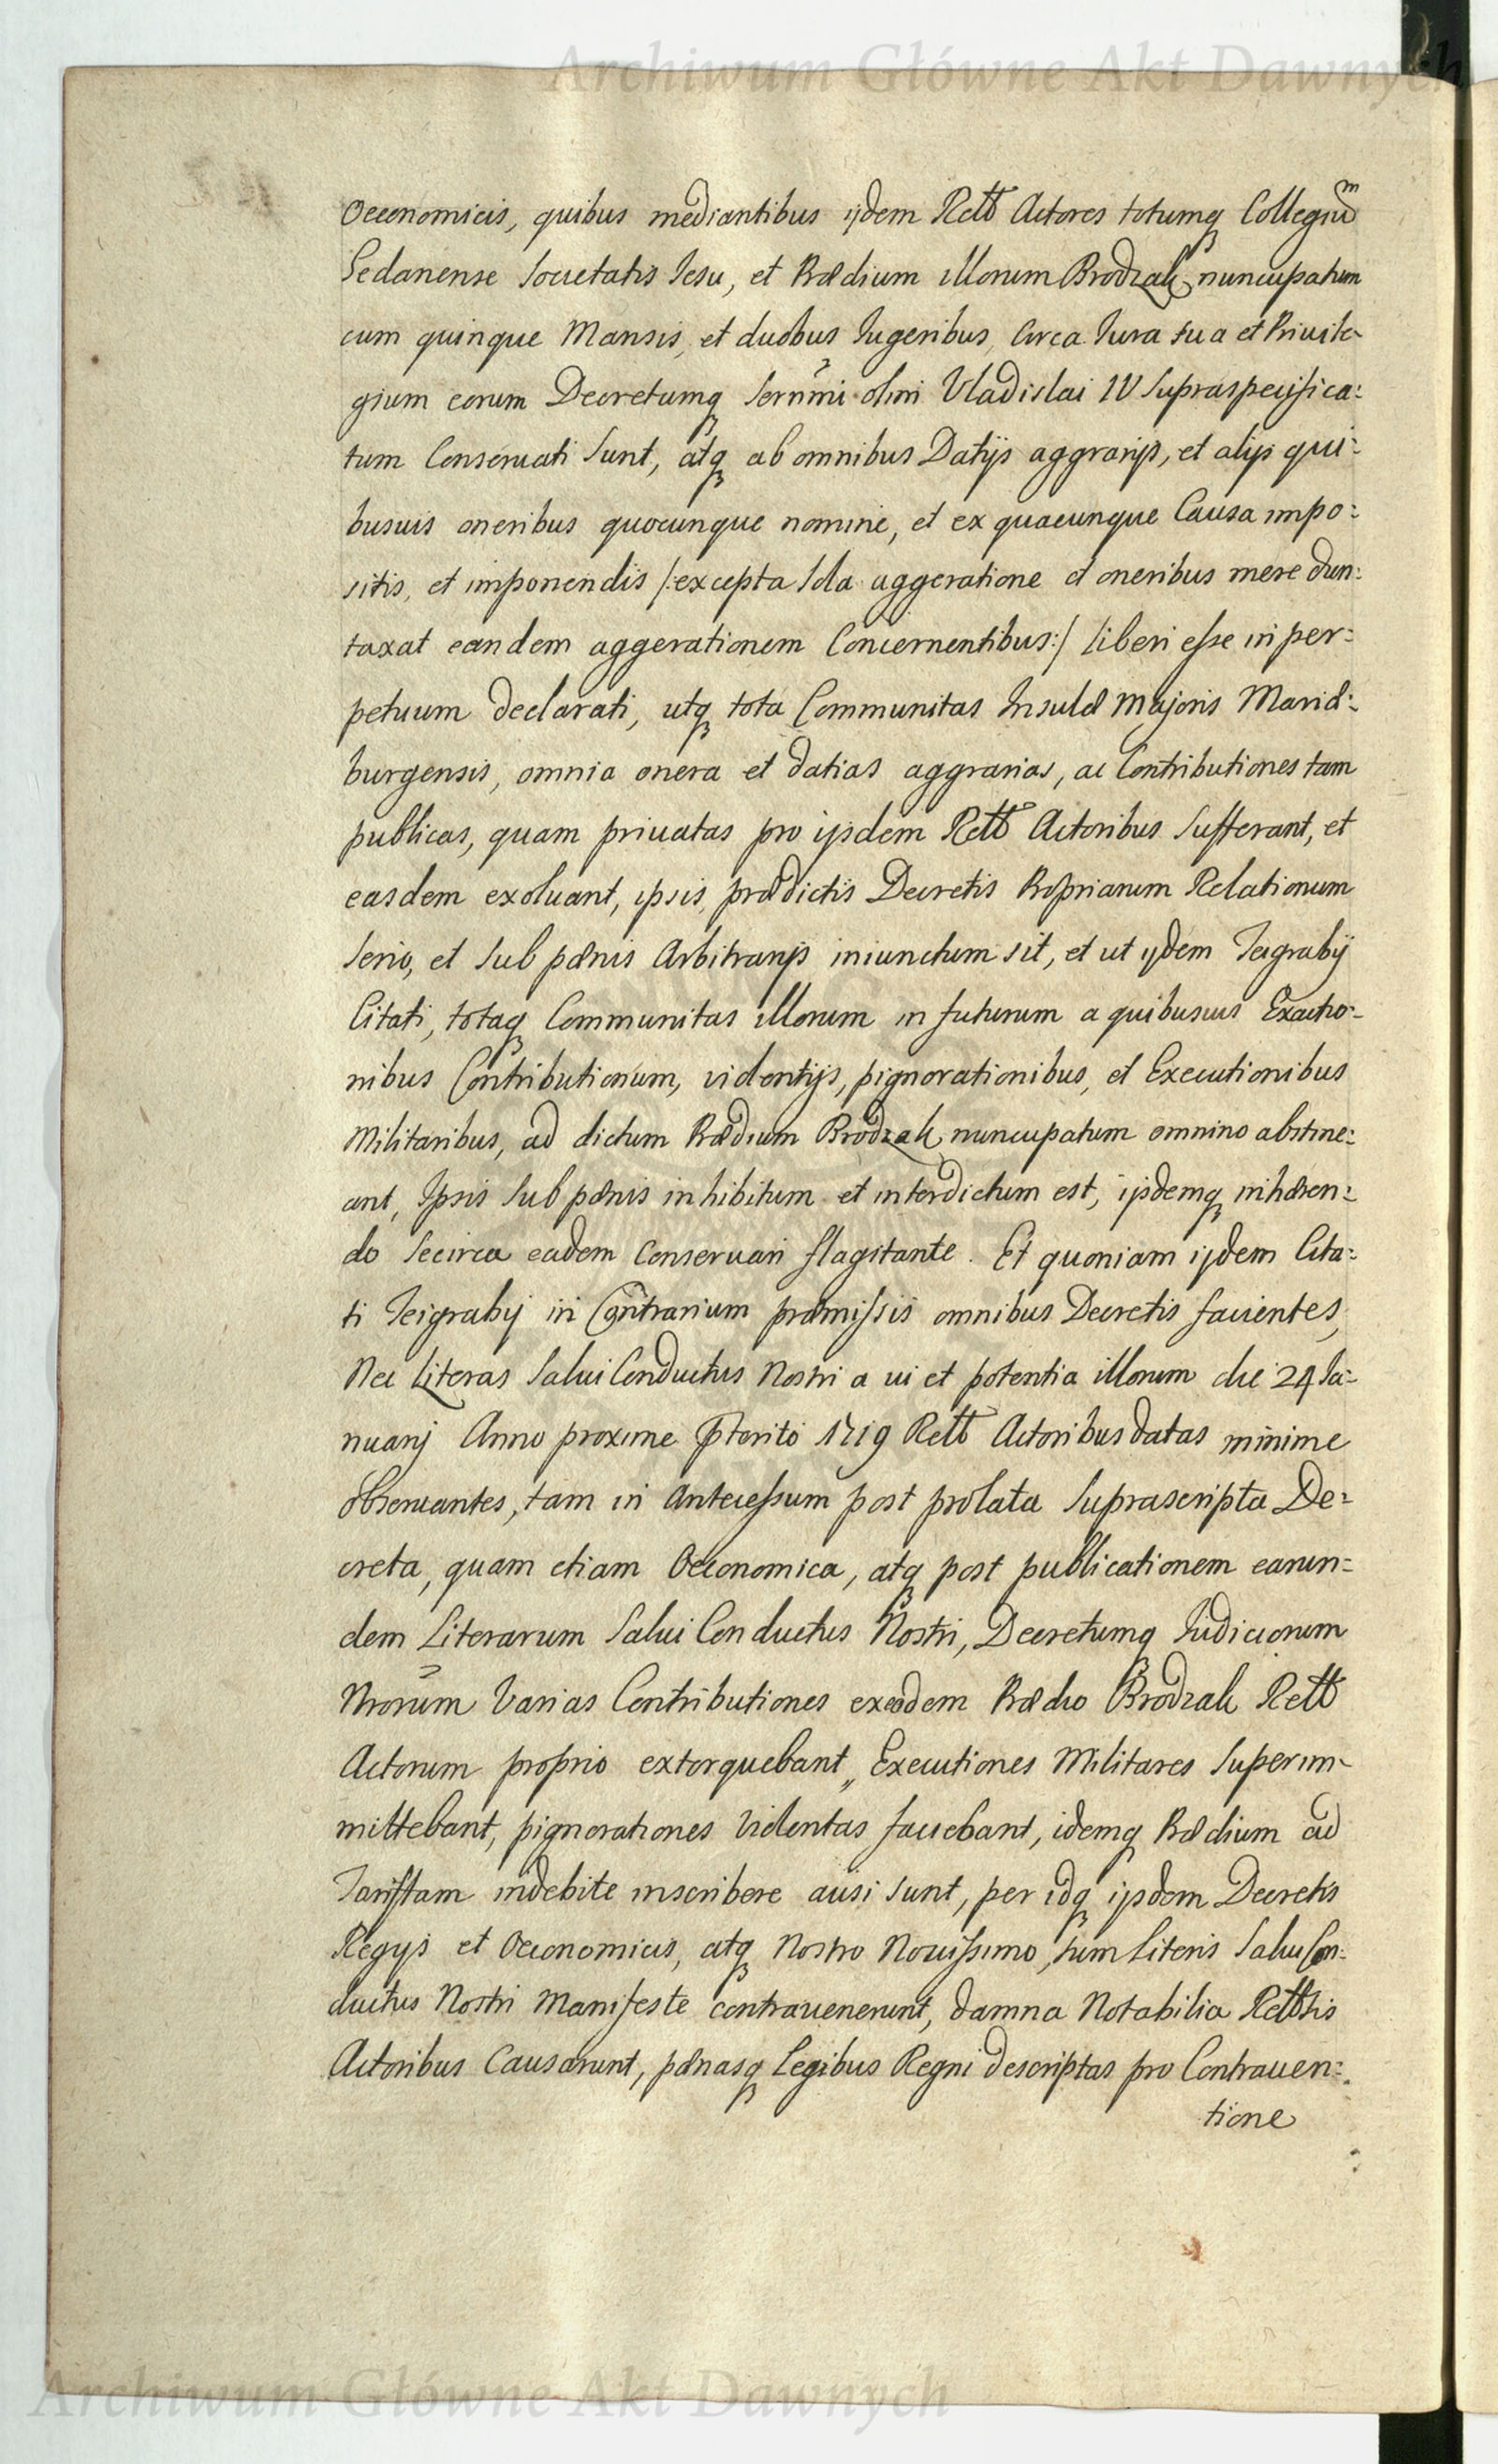 Archiwum Główne Akt Dawnych
Oeconomicis, quibus mediantibus ijdem Rett Actores totumq Collegiũm
Gedanense Societatis Iesu, et Prædium illorum Brodzak nuncupatum
cum quinque Mansis, et duobus Iugeribus, circa Iura sua et Priuile-
gium eorum Decretumq Serñmi olim Vladislai IV Supraspecifica:
tum Conseruati Sunt, atq ab omnibus Datijs aggrarijs, et alijs qui:
busuis oneribus quocunque nomine, et ex quacunque Causa impo:
sitis, et imponendis /:excepta Sola aggeratione et oneribus mere dun:
taxat eandem aggerationem Concernentibus:/ liberi esse in per:
petuum declarati, utq tota Communitas Insulæ Majoris Mariæ:
burgensis, omnia onera et datias aggrarias, ac Contributiones tam
publicas, quam priuatas pro ijsdem Rett Actoribus Sufferant, et
easdem exoluant, ipsis prædictis Decretis Propriarum Relationum
Serio, et Sub pænis Arbitrarijs iniunctum sit, et ut ijdem Teigrabij
Citati, totaq Communitas illorum in futurum a quibusuis Exactio:
nibus Contributionum, violentijs, pignorationibus, et Executionibus
Militaribus, ad dictum Prædium Brodzak nuncupatum omnino abstine:
ant, Ipsis Sub pænis inhibitum et interdictum est, ijsdemq inhæren:
do Secirca eadem Conseruari flagitante. Et quoniam ijdem Cita:
ti Teigrabij in Contrarium præmissis omnibus Decretis facientes,
Nec Literas Salui Conductus Nostri a ui et potentia illorum die 24 Ia:
nuarij Anno proxime pterito 1719 Rett Actoribus datas minime
obseruantes, tam in Antecessum post prolata Suprascripta De:
creta, quam etiam Oeconomica, atq post publicationem earun:
dem Literarum Salui Conductus Nostri, Decretumq Iudiciorum
Nrorum Varias Contributiones exeodem Prædio Brodzak Rett
Actorum proprio extorquebant, Executiones Militares Superim-
mittebant, pignorationes Violentas faciebant, idemq Prædium ad
Tariffam indebite inscribere ausi sunt, per idq ijsdem Decretis
Regijs et Oeconomicis, atq Nostro Nouissimo, tum Literis Salui Con:
ductus Nostri Manifeste contrauenerunt, damna Notabilia Rettbis
Actoribus Causarunt, pænasq Legibus Regni descriptas pro Contrauen:
tione
Archiwum Główne Akt Dawnych